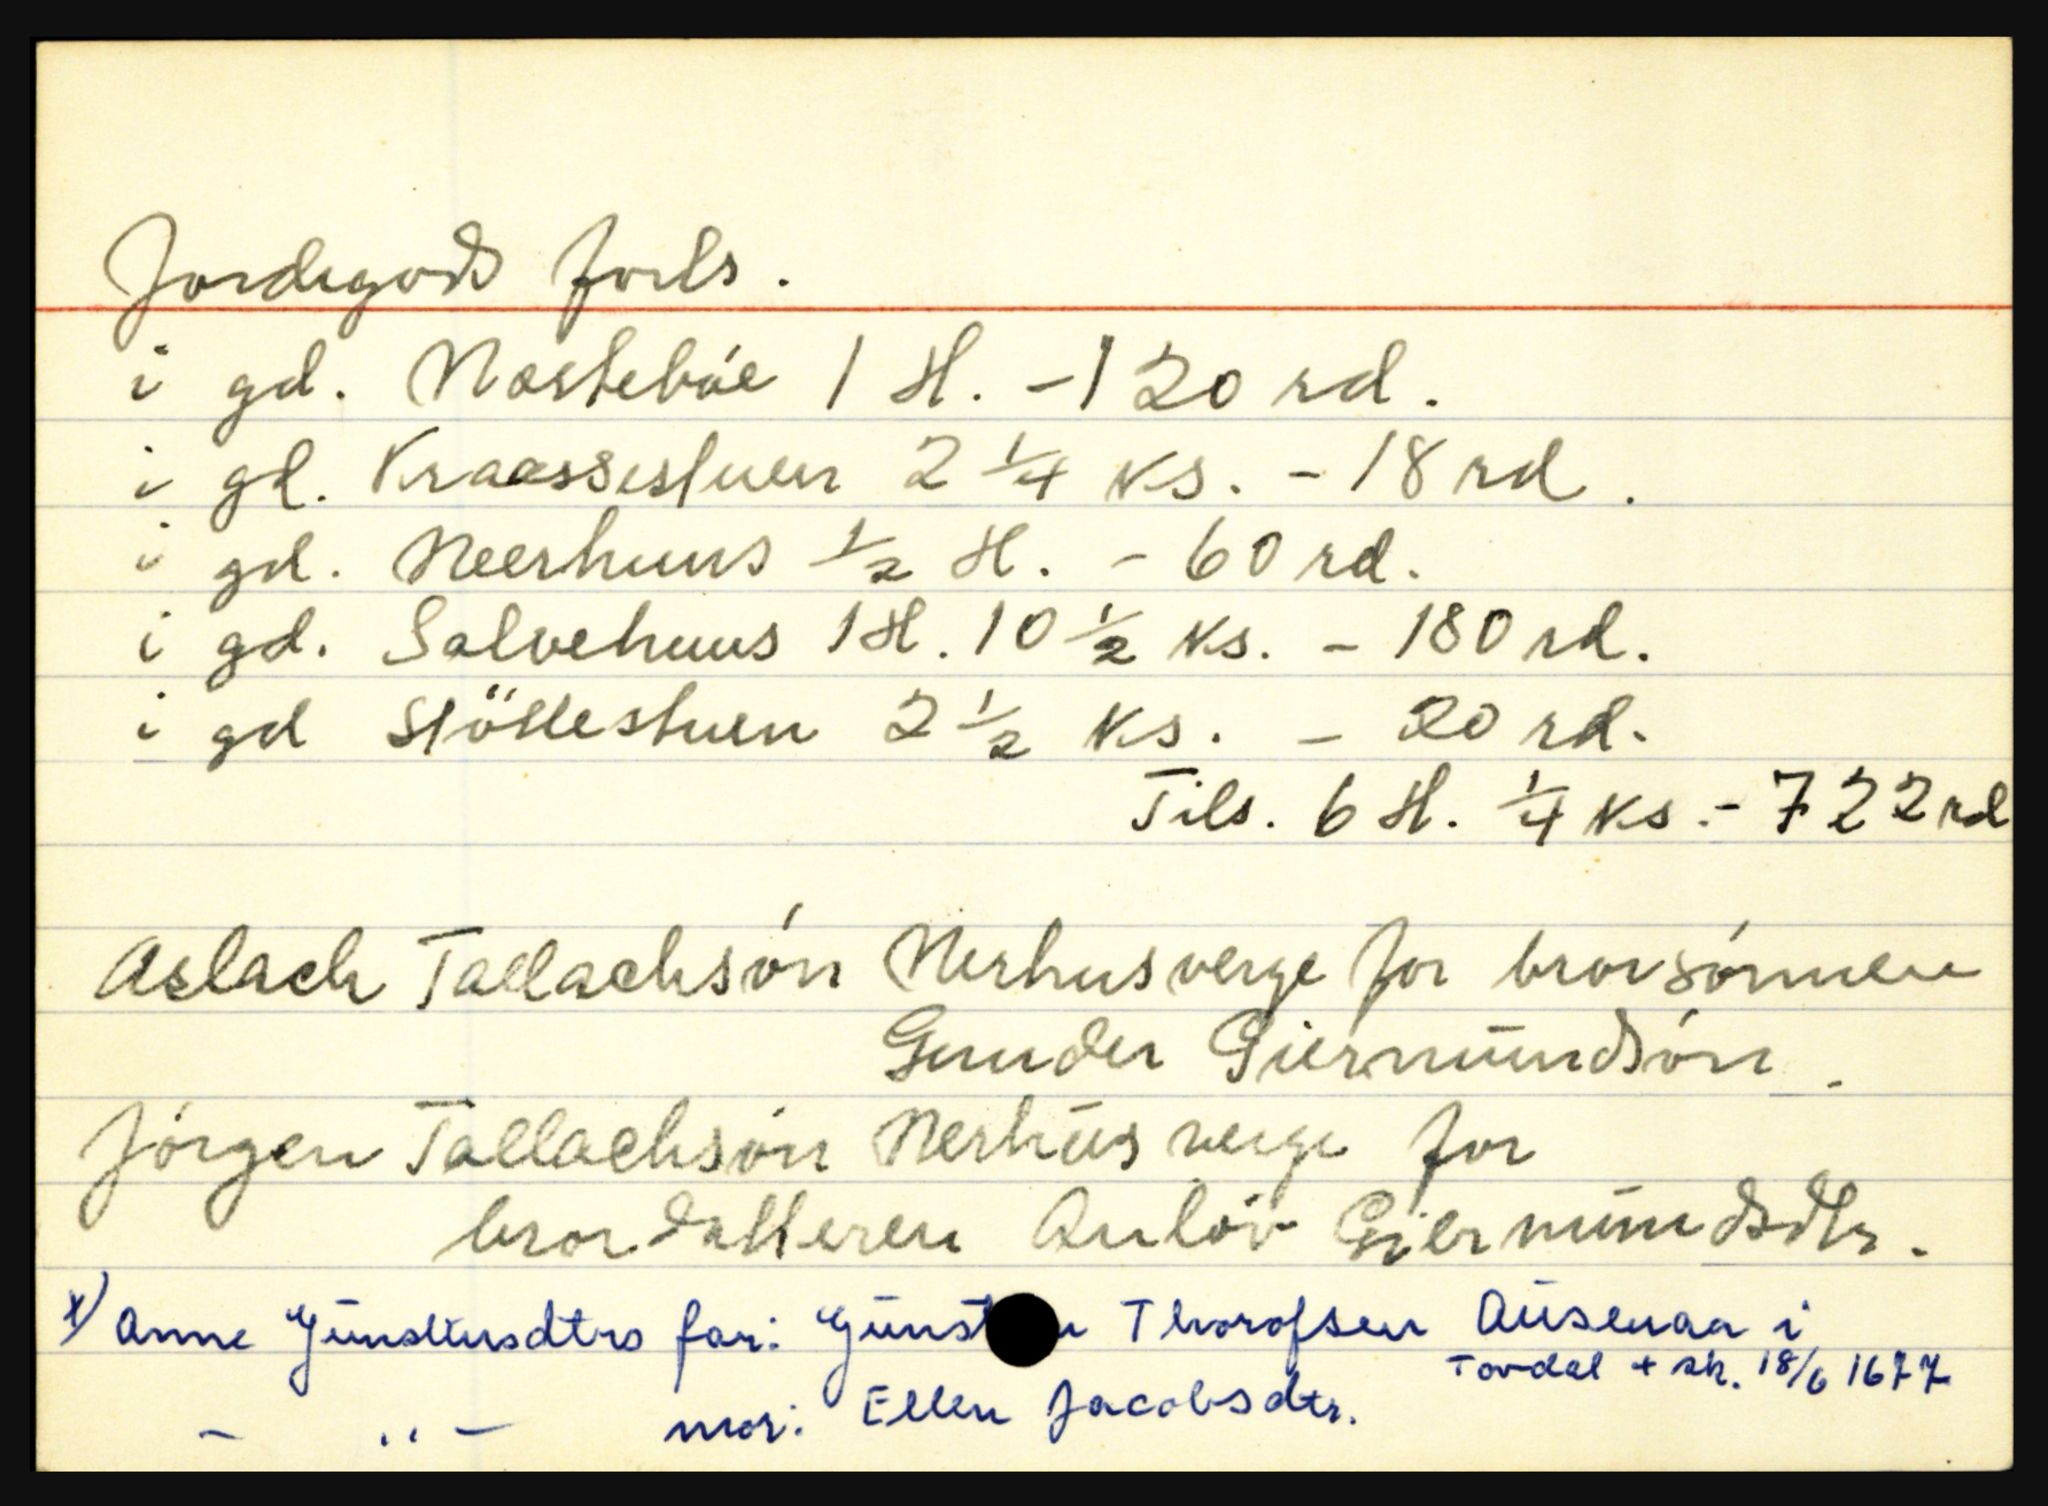 Jordegods forts.
i gd. Nostebøe 1 H. - 120 rd.
i gd. Kraassestuen 2 1/4 ks. - 18 rd.
i gd. Neerhuus 1/2 H. - 60 rd.
i gd. Salvehuus 1 H. 10 1/2 ks. - 180 rd.
i gd Stöllestuen 2 1/2 ks. - 20 rd.
Tils. 6 H. 1/4 ks. - 722 rd
Aslach Tallachsón Nerhus verge for brorsónnen
Gunder Giermundsón.
Jórgen Tallachsón Nerhus verge for
brordatteren Anlóv Giermundsdtr.
x) Anne Gunstensdtrs far: Gunsten Thorofsen Ausenaa i
Tovdal + sk. 18/6 1677
- ,, - mor: Ellen Jacobsdtr.